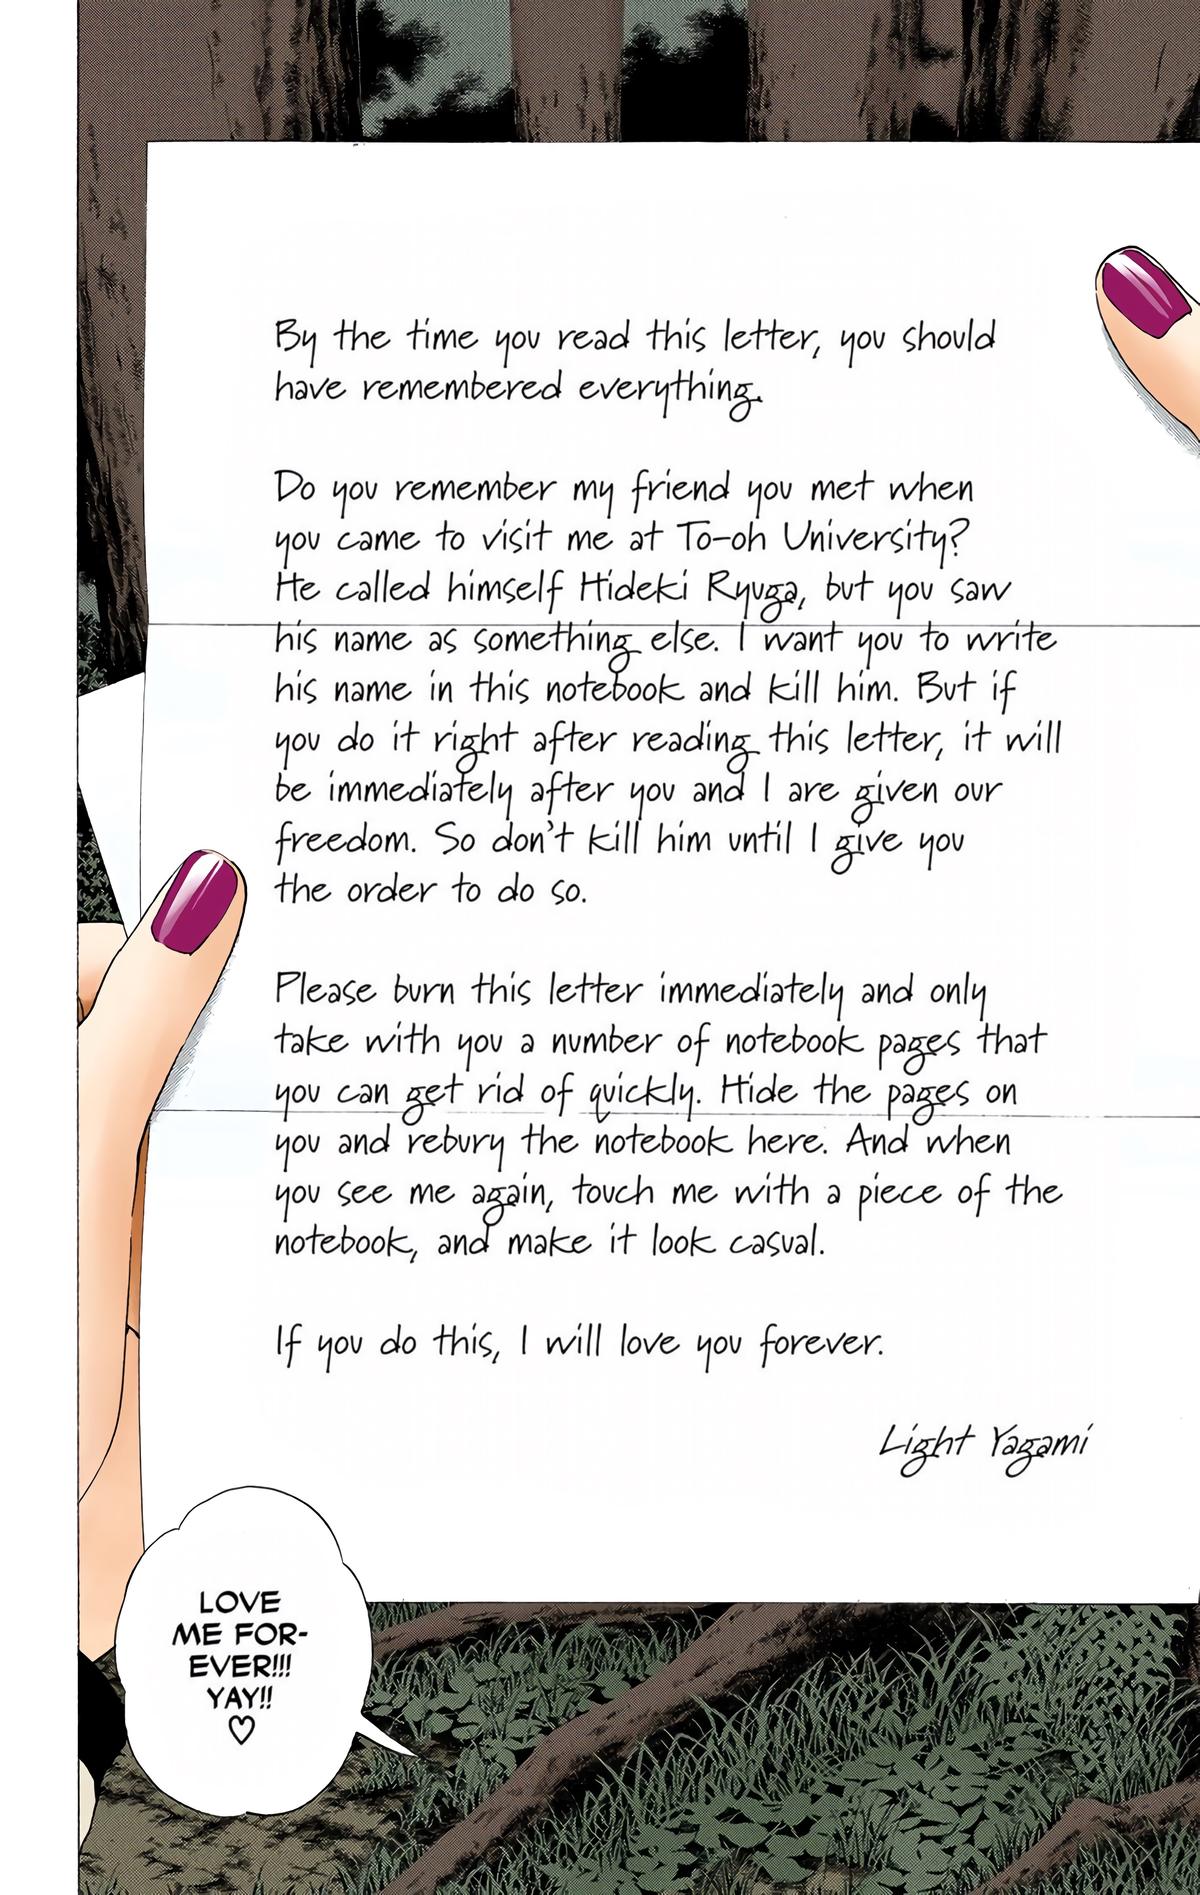 By the time you read this letter, you should
have remembered everything.
Do you remember my friend you met when
you came to visit me at To-oh University?
He called himself Hideki Ryuga, but you saw
his name as something else. I want you to write
his name in this notebook and kill him. But if
you do it right after reading this letter, it will
be immediately after you and I are given our
freedom. So don't kill him until I give you
the order to do so.
Please burn this letter immediately and only
take with you a number of notebook pages that
you can get rid of quickly. Hide the pages on
you and rebury the notebook here. And when
you see me again, touch me with a piece of the
notebook, and make it look casual.
If you do this, I will love you forever.
Light Yagami
LOVE
ME FOR-
EVER!!!
YAY!!
♡